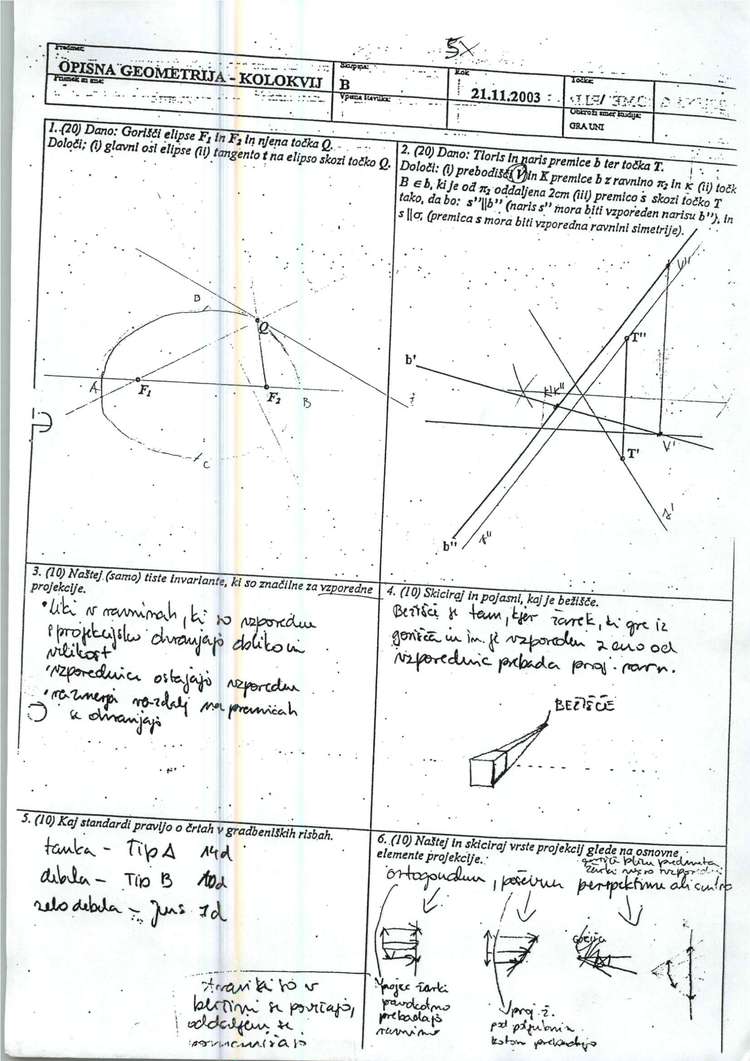 5x
Predmet:
OPISNA GEOMETRIJA - KOLOKVIJ
Priimek in ime:
Skupina:
B
Vpisna številka:
Rok:
21.11.2003
Točke:
Obkroži smer študija:
GRA UNI
1. (20) Dano: Gorišči elipse F₁ in F₂ in njena točka Q.
Določi: (i) glavni osi elipse (ii) tangento t na elipso skozi točko Q.
B
Q
A
F₁
F₂
B
C
2. (20) Dano: Tloris in naris premice b ter točka T.
Določi: (i) prebodišči V in K premice b z ravnino π₂ in κ (ii) točk
B ∈ b, ki je od π₂ oddaljena 2cm (iii) premico s skozi točko T
tako, da bo: s''||b'' (naris s'' mora biti vzporeden narisu b''), in
s || σ, (premica s mora biti vzporedna ravnini simetrije).
V''
T''
b'
K'K''
V'
T'
s'
b''
s''
3. (10) Naštej (samo) tiste invariante, ki so značilne za vzporedne
projekcije.
• liki v ravninah, ki so vzporedne
s projekcijsko ohranjajo obliko in
velikost
• vzporednice ostajajo vzporedne
• razmerja razdalj na premicah
se ohranjajo
4. (10) Skiciraj in pojasni, kaj je bežišče.
Bežišče je tam, kjer žarek, ki gre iz
gorišča in je vzporeden z eno od
vzporednic prebada proj. ravn.
BEŽIŠČE
5. (10) Kaj standardi pravijo o črtah v gradbeniških risbah.
tanka - Tip A
debela - Tip B
zelo debela -
6. (10) Naštej in skiciraj vrste projekcij glede na osnovne
elemente projekcije.
ortogonalna, poševna perspektivna ali centr
projec žarki
pravokotno
prebadajo
ravnino
proj. ž.
pod poljubnim
kotom prebadajo
povečajo,
oddaljeni se